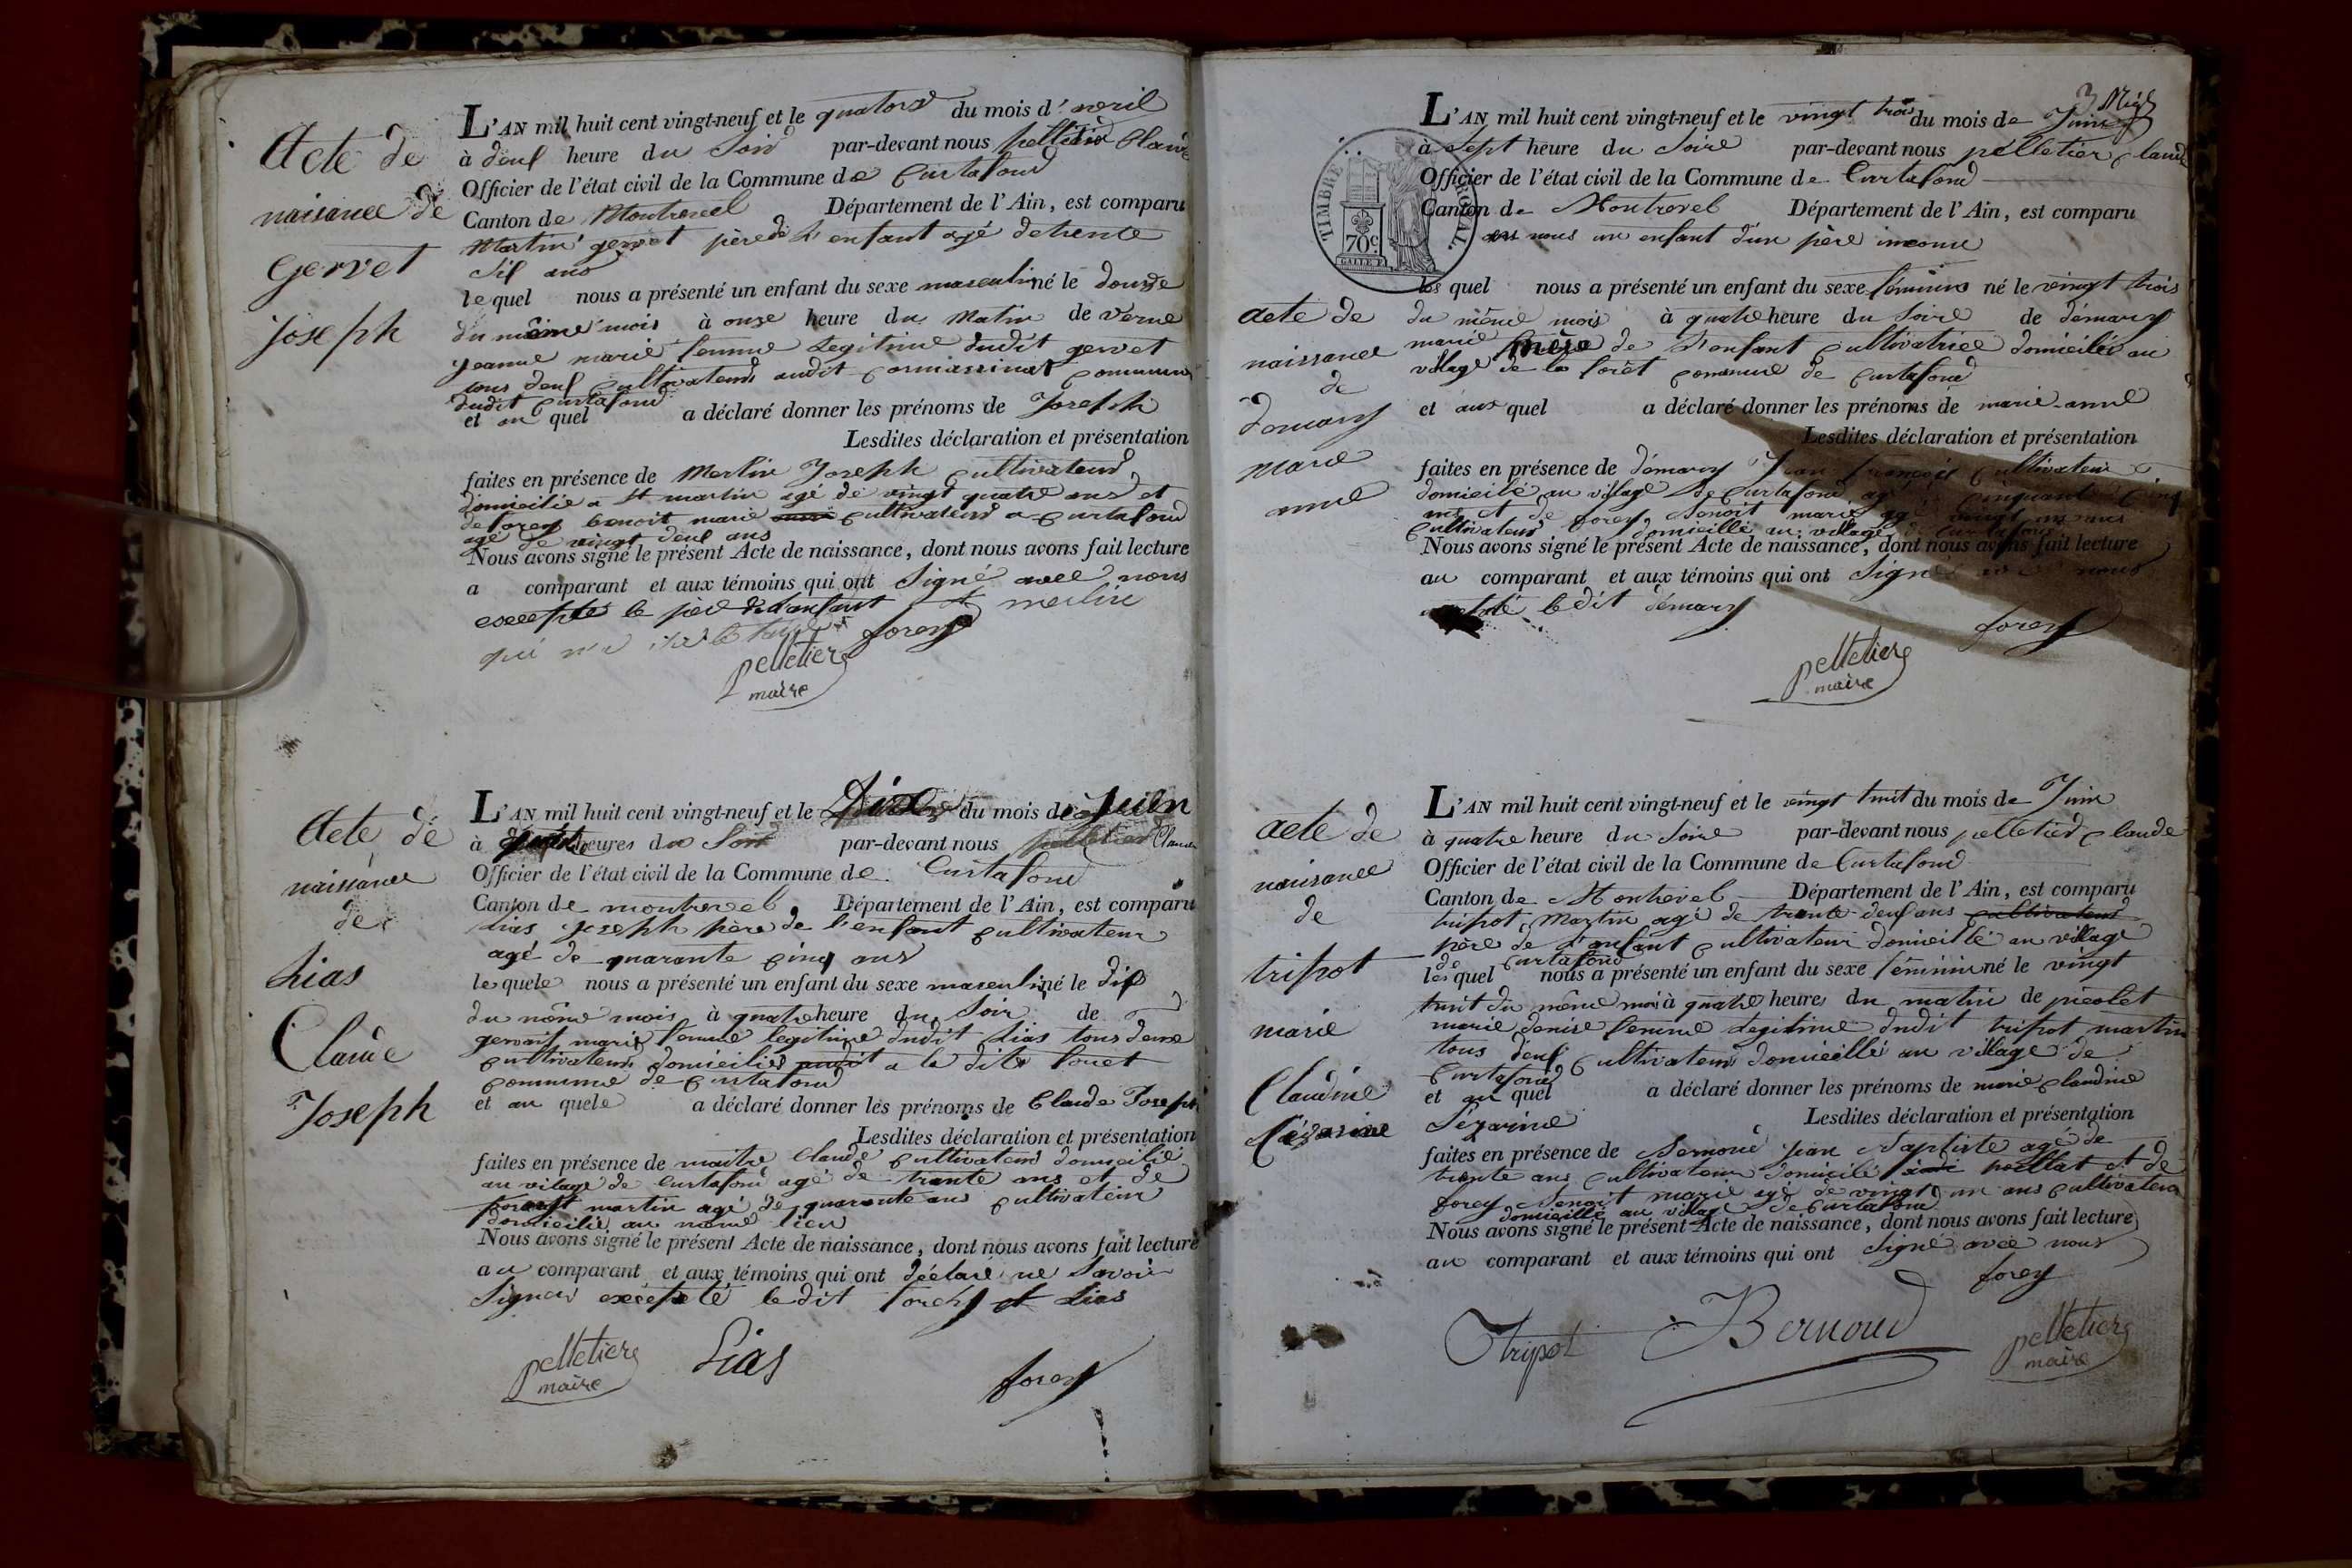 Acte de
naisance de
Gervet
Joseph
L'AN mil huit cent vingt-neuf et le quatorze du mois d'avril
à deuf heure du Soir par-devant nous pelletier Claude
Officier de l'état civil de la Commune de Curtafond
Canton de Montrevel Département de l'Ain, est comparu
Martin gervet père de l'enfant agé de trente
sif ans
le quel nous a présenté un enfant du sexe masculin né le douze
du même mois à onze heure du Matin de Verne
jeanne marie femme Legitime dudit gervet
tous deuf Cultivateurs audit commune
dudit Curtafond
et au quel a déclaré donner les prénoms de Joseph
Lesdites déclaration et présentation
faites en présence de Merlin Joseph Cultivateur
domicilié a st martin agé de vingt quatre ans et
de forey benoit marie cultivateur a Curtafond
agé de vingt deuf ans
Nous avons signé le présent Acte de naissance, dont nous avons fait lecture
a comparant et aux témoins qui ont Signé avec nous
excepté le père de l'enfant
merlin
forey
pelletier
maire
Acte de
naissance
de
Lias
Claude
Joseph
L'AN mil huit cent vingt-neuf et le Dix du mois de Juin
à quatre heures du Soir par-devant nous pelletier Claude
Officier de l'état civil de la Commune de Curtafond
Canton de montrevel Département de l'Ain, est comparu
Lias joseph père de l'enfant cultivateur
agé de quarante cinq ans
le quele nous a présenté un enfant du sexe masculin né le dif
du même mois à quatre heure du Soir de
gervais marie femme legitime dudit Lias tous deux
cultivateurs domiciliés audit a la dite
commune de Curtafond
et au quele a déclaré donner les prénoms de Claude Joseph
Lesdites déclaration et présentation
faites en présence de maitre Claude cultivateur domicilié
au vilage de Curtafond agé de trante ans et de
martin agé de quarante ans cultivateur
domicilié au même lieu
Nous avons signé le présent Acte de naissance, dont nous avons fait lecture
au comparant et aux témoins qui ont déclaré ne Savoir
Signer excepté ledit et Lias
pelletier
maire
Lias
forey
TIMBRE ROYAL
70c
acte de
naissance
de
démary
marie
anne
L'AN mil huit cent vingt-neuf et le vingt trois du mois de Juin
à Sept heure du Soire par-devant nous pelletier Claude
Officier de l'état civil de la Commune de Curtafond
Canton de Montrevel Département de l'Ain, est comparu
nous un enfant d'un père inconnu
les quel nous a présenté un enfant du sexe féminin né le vingt trois
du même mois à quatre heure du Soire de démary
marie mère de l'enfant Cultivatrice domiciliée au
village de la forêt commune de Curtafond
et aux quel a déclaré donner les prénoms de marie-anne
Lesdites déclaration et présentation
faites en présence de démary Jean françois Cultivateur
domicilié au village de Curtafond agé de cinquante cinq
ans et de forey benoit marie agé vingt un ans
Cultivateur domicillié au village de
Nous avons signé le présent Acte de naissance, dont nous avons fait lecture
au comparant et aux témoins qui ont Signé avec nous
excepté le dit démary
forey
pelletier
maire
acte de
naisance
de
tripot
marie
Claudine
Césarine
L'AN mil huit cent vingt-neuf et le vingt huit du mois de Juin
à quatre heure du Soire par-devant nous pelletier Claude
Officier de l'état civil de la Commune de Curtafond
Canton de Montrevel Département de l'Ain, est comparu
tripot Martin agé de trante deuf ans cultivateur
père de l'enfant cultivateur domicillié au village
de Curtafond
les quel nous a présenté un enfant du sexe féminin né le vingt
huit du même mois à quatre heures du matin de picolet
marie denise femme Legitime dudit tripot martin
tous deuf Cultivateurs domicillié au village de
Curtafond
et au quel a déclaré donner les prénoms de marie Claudine
Sézarine
Lesdites déclaration et présentation
faites en présence de Bernoud jean Baptiste agé de
trente ans cultivateur domicilié poillat et de
forey Benoit marie agé de vingt un ans Cultivateur
domicillié au village de Curtafond
Nous avons signé le présent Acte de naissance, dont nous avons fait lecture
au comparant et aux témoins qui ont Signé avec nous
forey
Tripot
Bernoud
pelletier
maire